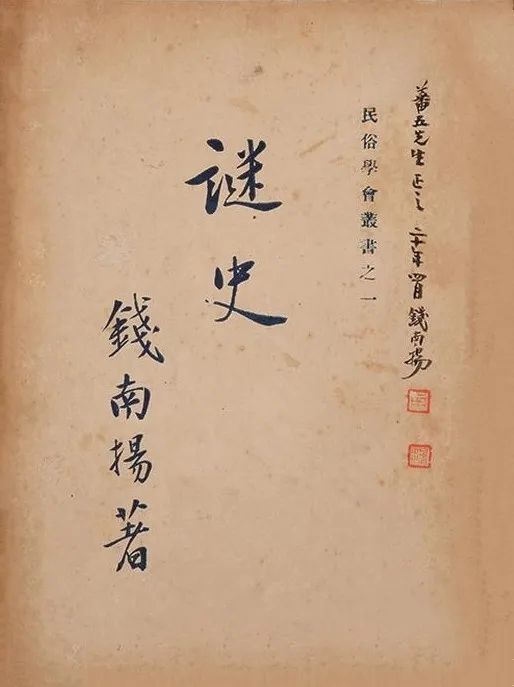 蕃五先生正之 二十年四月 錢南揚
民俗學會叢書之一
謎史
錢南揚著